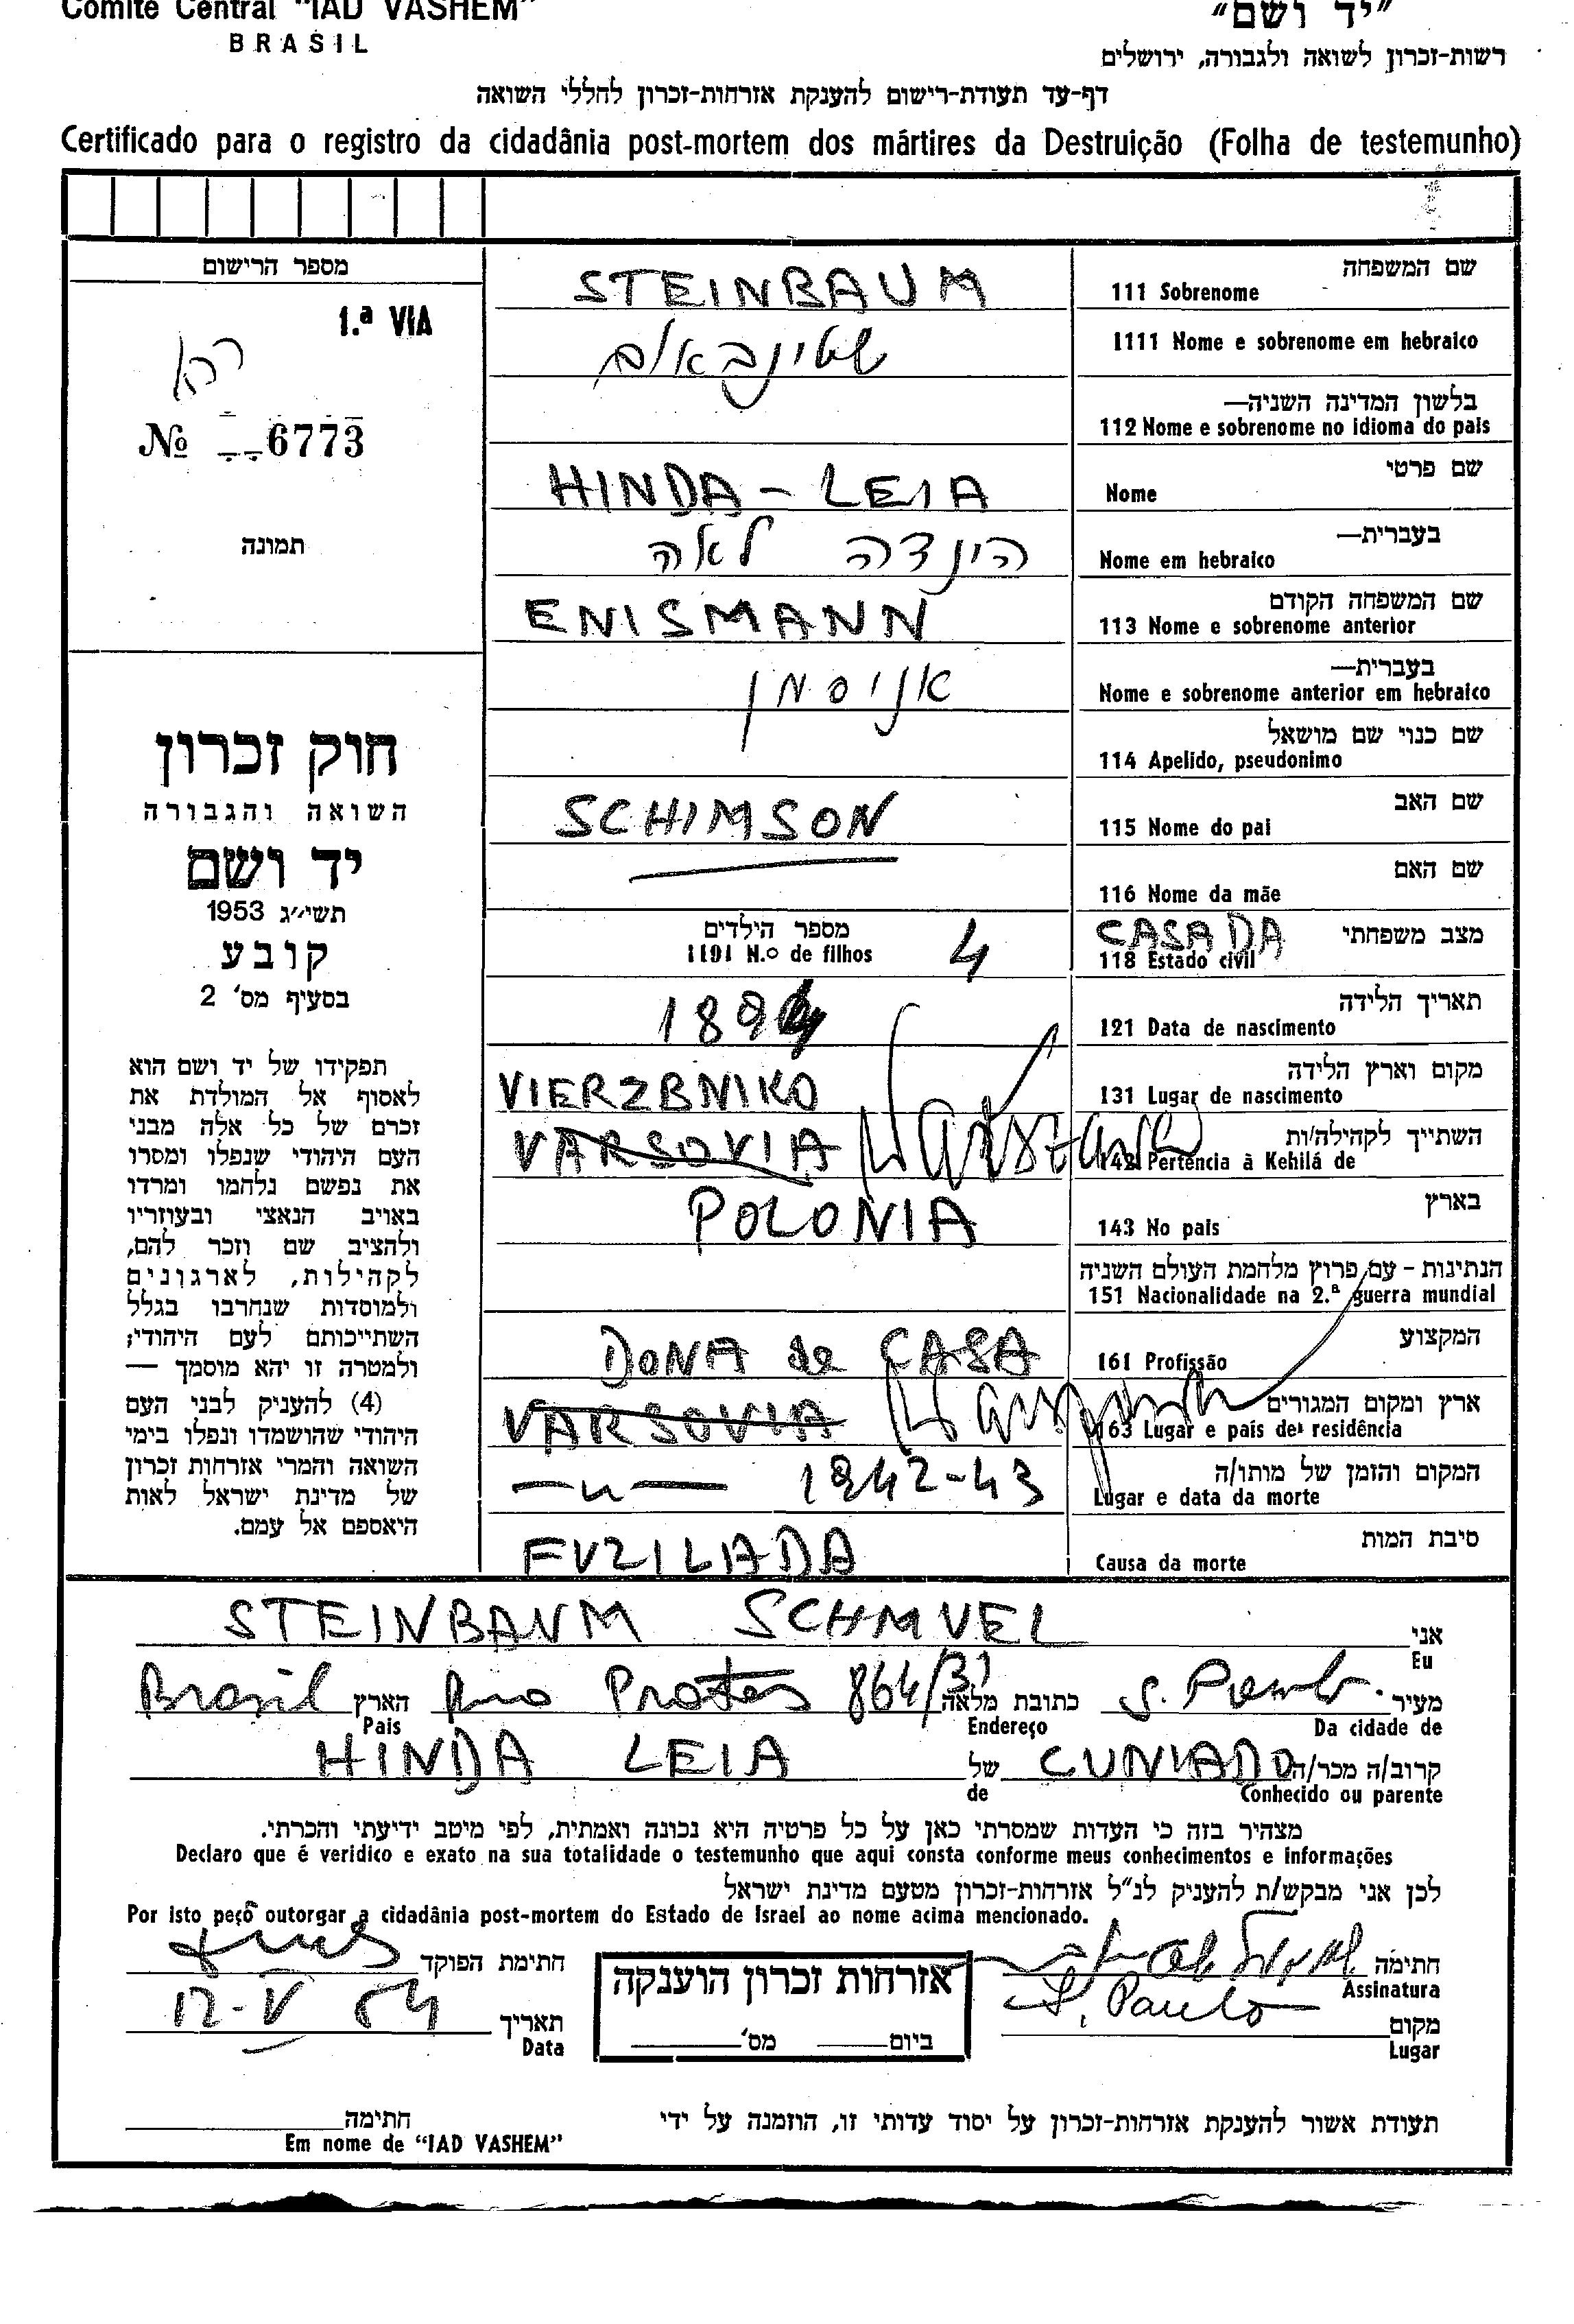 Comité Central "IAD VASHEM"
BRASIL
"יד ושם"
רשות-זכרון לשואה ולגבורה, ירושלים
דף-עד תעודת-רישום להענקת אזרחות-זכרון לחללי השואה
Certificado para o registro da cidadânia post-mortem dos mártires da Destruição (Folha de testemunho)
מספר הרישום
1.ª VIA
№ 6773
תמונה
חוק זכרון
השואה והגבורה
יד ושם
תשי"ג 1953
קובע
בסעיף מס' 2
תפקידו של יד ושם הוא
לאסוף אל המולדת את
זכרם של כל אלה מבני
העם היהודי שנפלו ומסרו
את נפשם נלחמו ומרדו
באויב הנאצי ובעוזריו
ולהציב שם וזכר להם,
לקהילות, לארגונים
ולמוסדות שנחרבו בגלל
השתייכותם לעם היהודי;
ולמטרה זו יהא מוסמך —
(4) להעניק לבני העם
היהודי שהושמדו ונפלו בימי
השואה והמרי אזרחות זכרון
של מדינת ישראל לאות
היאספם אל עמם.
שם המשפחה
111 Sobrenome STEINBAUM
1111 Nome e sobrenome em hebraico שטינבאום
בלשון המדינה השניה—
112 Nome e sobrenome no idioma do pais
שם פרטי
Nome HINDA - LEIA
בעברית—
Nome em hebraico הינדה לאה
שם המשפחה הקודם
113 Nome e sobrenome anterior ENISMANN
בעברית—
Nome e sobrenome anterior em hebraico אניסמן
שם כנוי שם מושאל
114 Apelido, pseudonimo
שם האב
115 Nome do pai SCHIMSON
שם האם
116 Nome da mãe
מצב משפחתי CASADA
118 Estado civil
מספר הילדים
1191 N.o de filhos 4
תאריך הלידה
121 Data de nascimento 1894
מקום וארץ הלידה
131 Lugar de nascimento VIERZBNIKO
השתייך לקהילה/ות
142 Pertencia à Kehilá de VARSOVIA Warszawa
בארץ
143 No pais POLONIA
הנתינות - עם פרוץ מלחמת העולם השניה
151 Nacionalidade na 2.ª guerra mundial
המקצוע
161 Profissão DONA de CASA
ארץ ומקום המגורים
163 Lugar e pais de residência VARSOVIA
המקום והזמן של מותו/ה
Lugar e data da morte —"— 1942-43
סיבת המות
Causa da morte FUZILADA
אני STEINBAUM SCHMUEL
Eu
מעיר S. Paulo. כתובת מלאה Rio Prates 864/31 הארץ Brasil
Da cidade de Endereço Pais
קרוב/ה מכר/ה CUNIADO של HINDA LEIA
Conhecido ou parente de
מצהיר בזה כי העדות שמסרתי כאן על כל פרטיה היא נכונה ואמתית, לפי מיטב ידיעתי והכרתי.
Declaro que é veridico e exato na sua totalidade o testemunho que aqui consta conforme meus conhecimentos e informações
לכן אני מבקש/ת להעניק לנ"ל אזרחות-זכרון מטעם מדינת ישראל
Por isto peço outorgar a cidadânia post-mortem do Estado de Israel ao nome acima mencionado.
חתימה
Assinatura
חתימת הפוקד
אזרחות זכרון הוענקה
ביום מס'
מקום S. Paulo
Lugar
תאריך 12-V 84
Data
תעודת אשור להענקת אזרחות-זכרון על יסוד עדותי זו, הוזמנה על ידי
חתימה
Em nome de "IAD VASHEM"